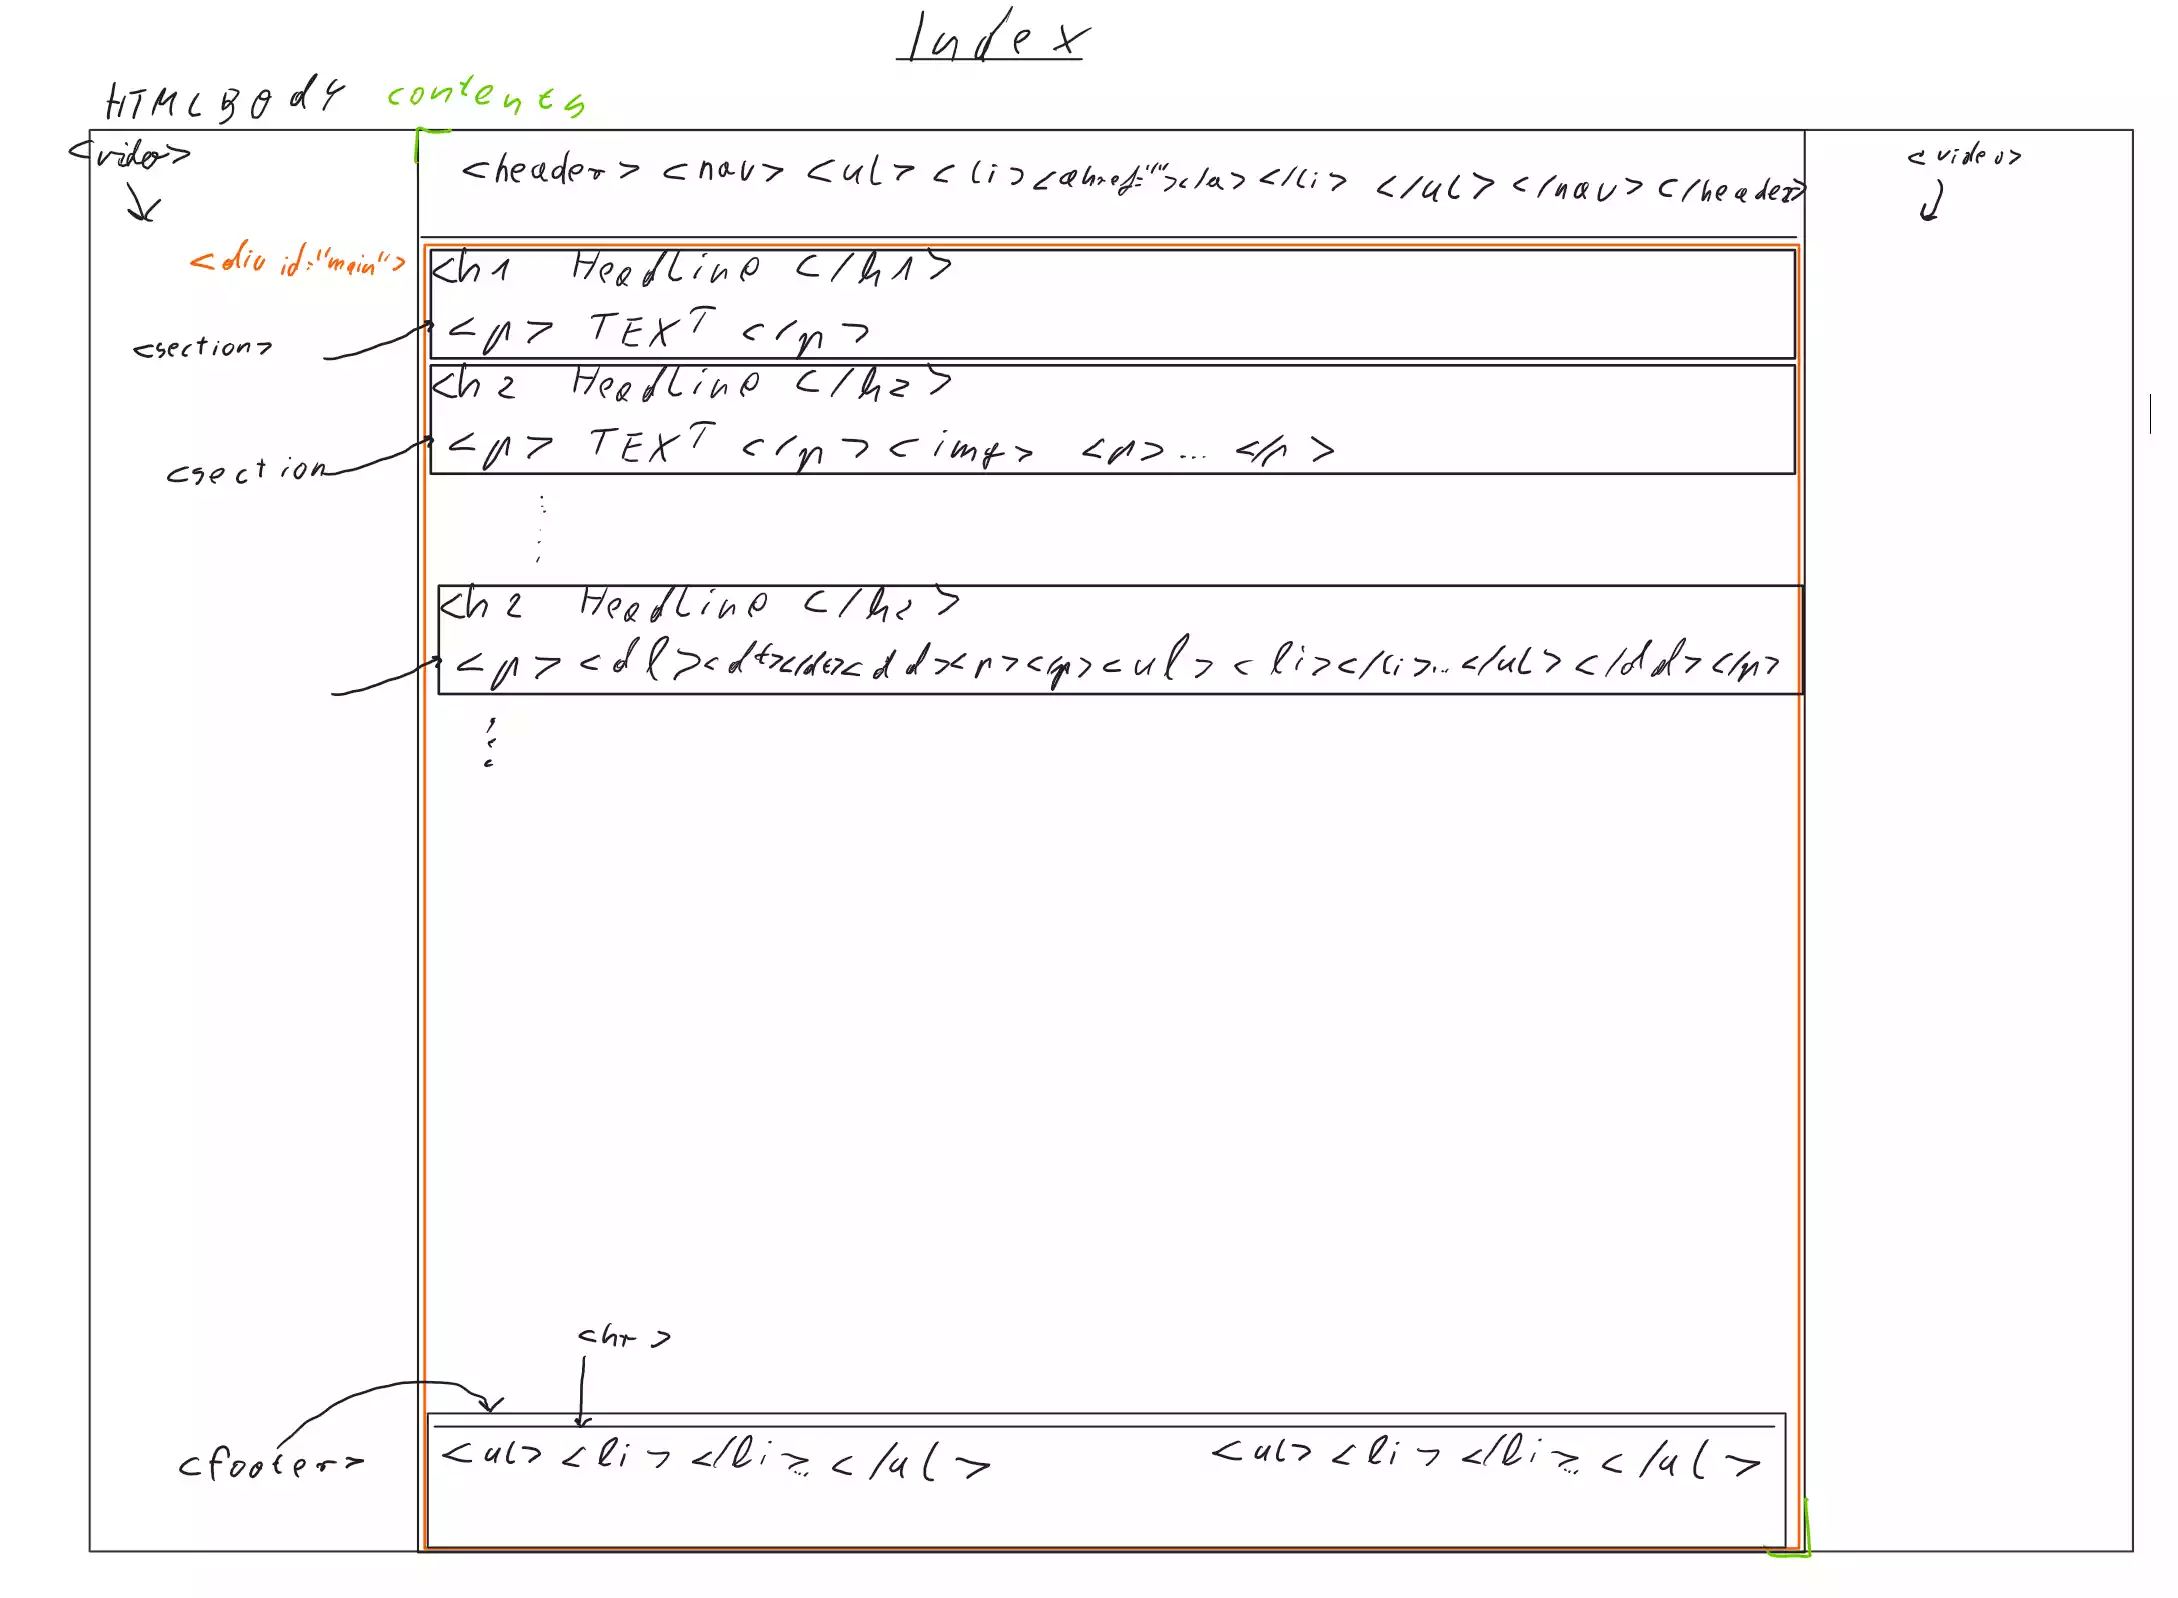 Index
HTMLBODY contents
<video>
<header> <nav> <ul> <li> <a href=""></a> </li> </ul> </nav> </header>
<video>
<div id="main">
<h1 Headline </h1>
<section>
<p> TEXT </p>
<h2 Headline </h2>
<section
<p> TEXT </p> <img> <p>... </p>
<h2 Headline </h2>
<p> <dl><dt></dt><dd><p></p><ul> <li></li>...</ul></dd></p>
<hr>
<footer>
<ul> <li> </li>... </ul>
<ul> <li> </li>... </ul>